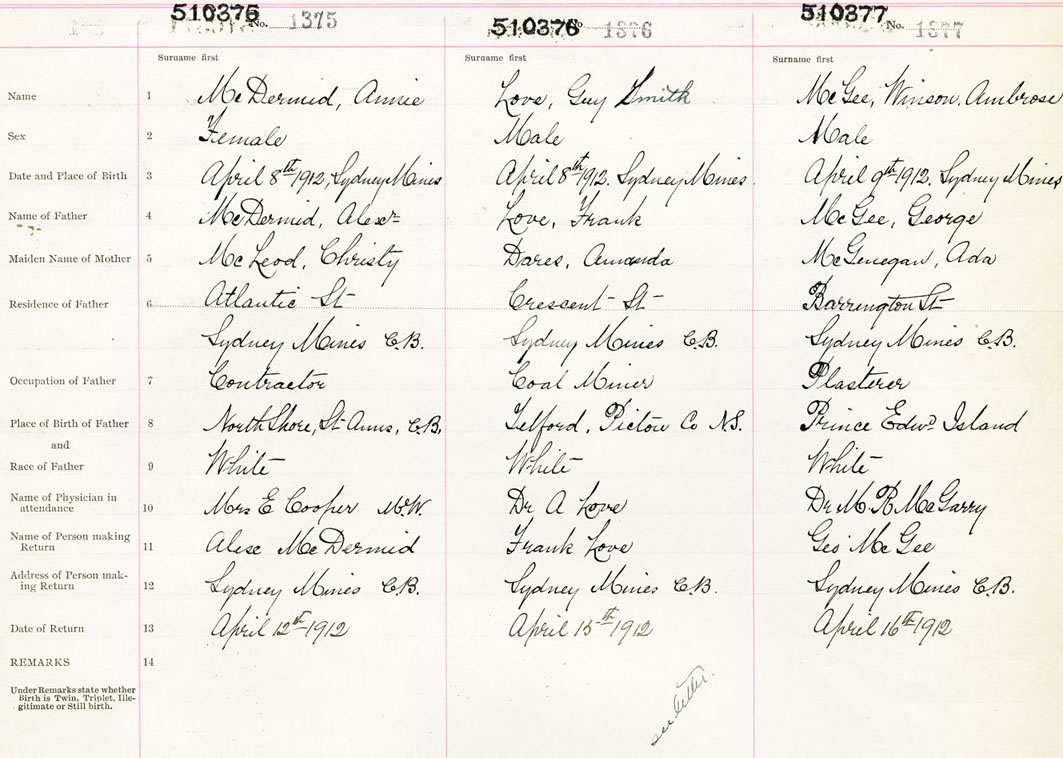 510375 No. 1375 510376 No. 1376 510377 No. 1377
Surname first Surname first Surname first
Name 1 McDermid, Annie Love, Guy Smith McGee, Winson. Ambrose
Sex 2 Female Male Male
Date and Place of Birth 3 April 8th 1912, Sydney Mines April 8th 1912. Sydney Mines April 9th 1912. Sydney Mines
Name of Father 4 McDermid, Alexr Love, Frank McGee, George
Maiden Name of Mother 5 McLeod, Christy Dares, Amanda McGenegan, Ada
Residence of Father 6 Atlantic St Crescent St Barrington St
Sydney Mines C.B. Sydney Mines C.B. Sydney Mines C.B.
Occupation of Father 7 Contractor Coal Miner Plasterer
Place of Birth of Father 8 North Shore, St Anns, C.B. Telford, Pictou Co N.S. Prince Edwd Island
and
Race of Father 9 White White White
Name of Physician in
attendance 10 Mrs E Cooper M.W. Dr A Love Dr M. R McGarry
Name of Person making
Return 11 Alex McDermid Frank Love Geo McGee
Address of Person mak-
ing Return 12 Sydney Mines C.B. Sydney Mines C.B. Sydney Mines C.B.
Date of Return 13 April 12th 1912 April 15th 1912 April 16th 1912
REMARKS 14
Under Remarks state whether
Birth is Twin, Triplet, Ille-
gitimate or Still birth.
see letter.